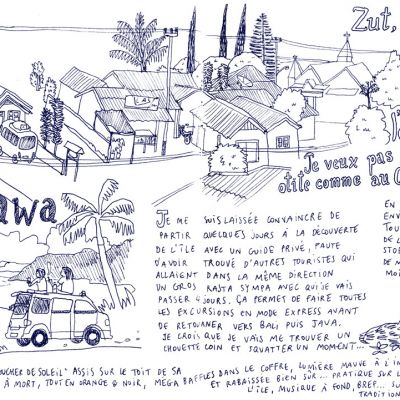 Zut,
Je veux pas
otite comme au
awa
JE ME SUIS LAISSÉE CONVAINCRE DE
PARTIR QUELQUES JOURS À LA DÉCOUVERTE
DE L'ÎLE AVEC UN GUIDE PRIVÉ, FAUTE
D'AVOIR TROUVÉ D'AUTRES TOURISTES QUI
ALLAIENT DANS LA MÊME DIRECTION
UN GROS RASTA SYMPA AVEC QUI JE VAIS
PASSER 4 JOURS. ÇA PERMET DE FAIRE TOUTES
LES EXCURSIONS EN MODE EXPRESS AVANT
DE RETOURNER VERS BALI PUIS JAVA.
JE CROIS QUE JE VAIS ME TROUVER UN
CHOUETTE COIN ET SQUATTER UN MOMENT...
EN
ENV
TOU
DE L
DE N
MOI
OUCHER DE SOLEIL" ASSIS SUR LE TOIT DE SA
MEGA BAFFLES DANS LE COFFRE, LUMIÈRE MAUVE À L'IN
À MORT, TOUT EN ORANGE & NOIR,
ET RABAISSÉE BIEN SÛR... PRATIQUE SUR L
L'ÎLE, MUSIQUE À FOND, BREF... SU
TRADITION